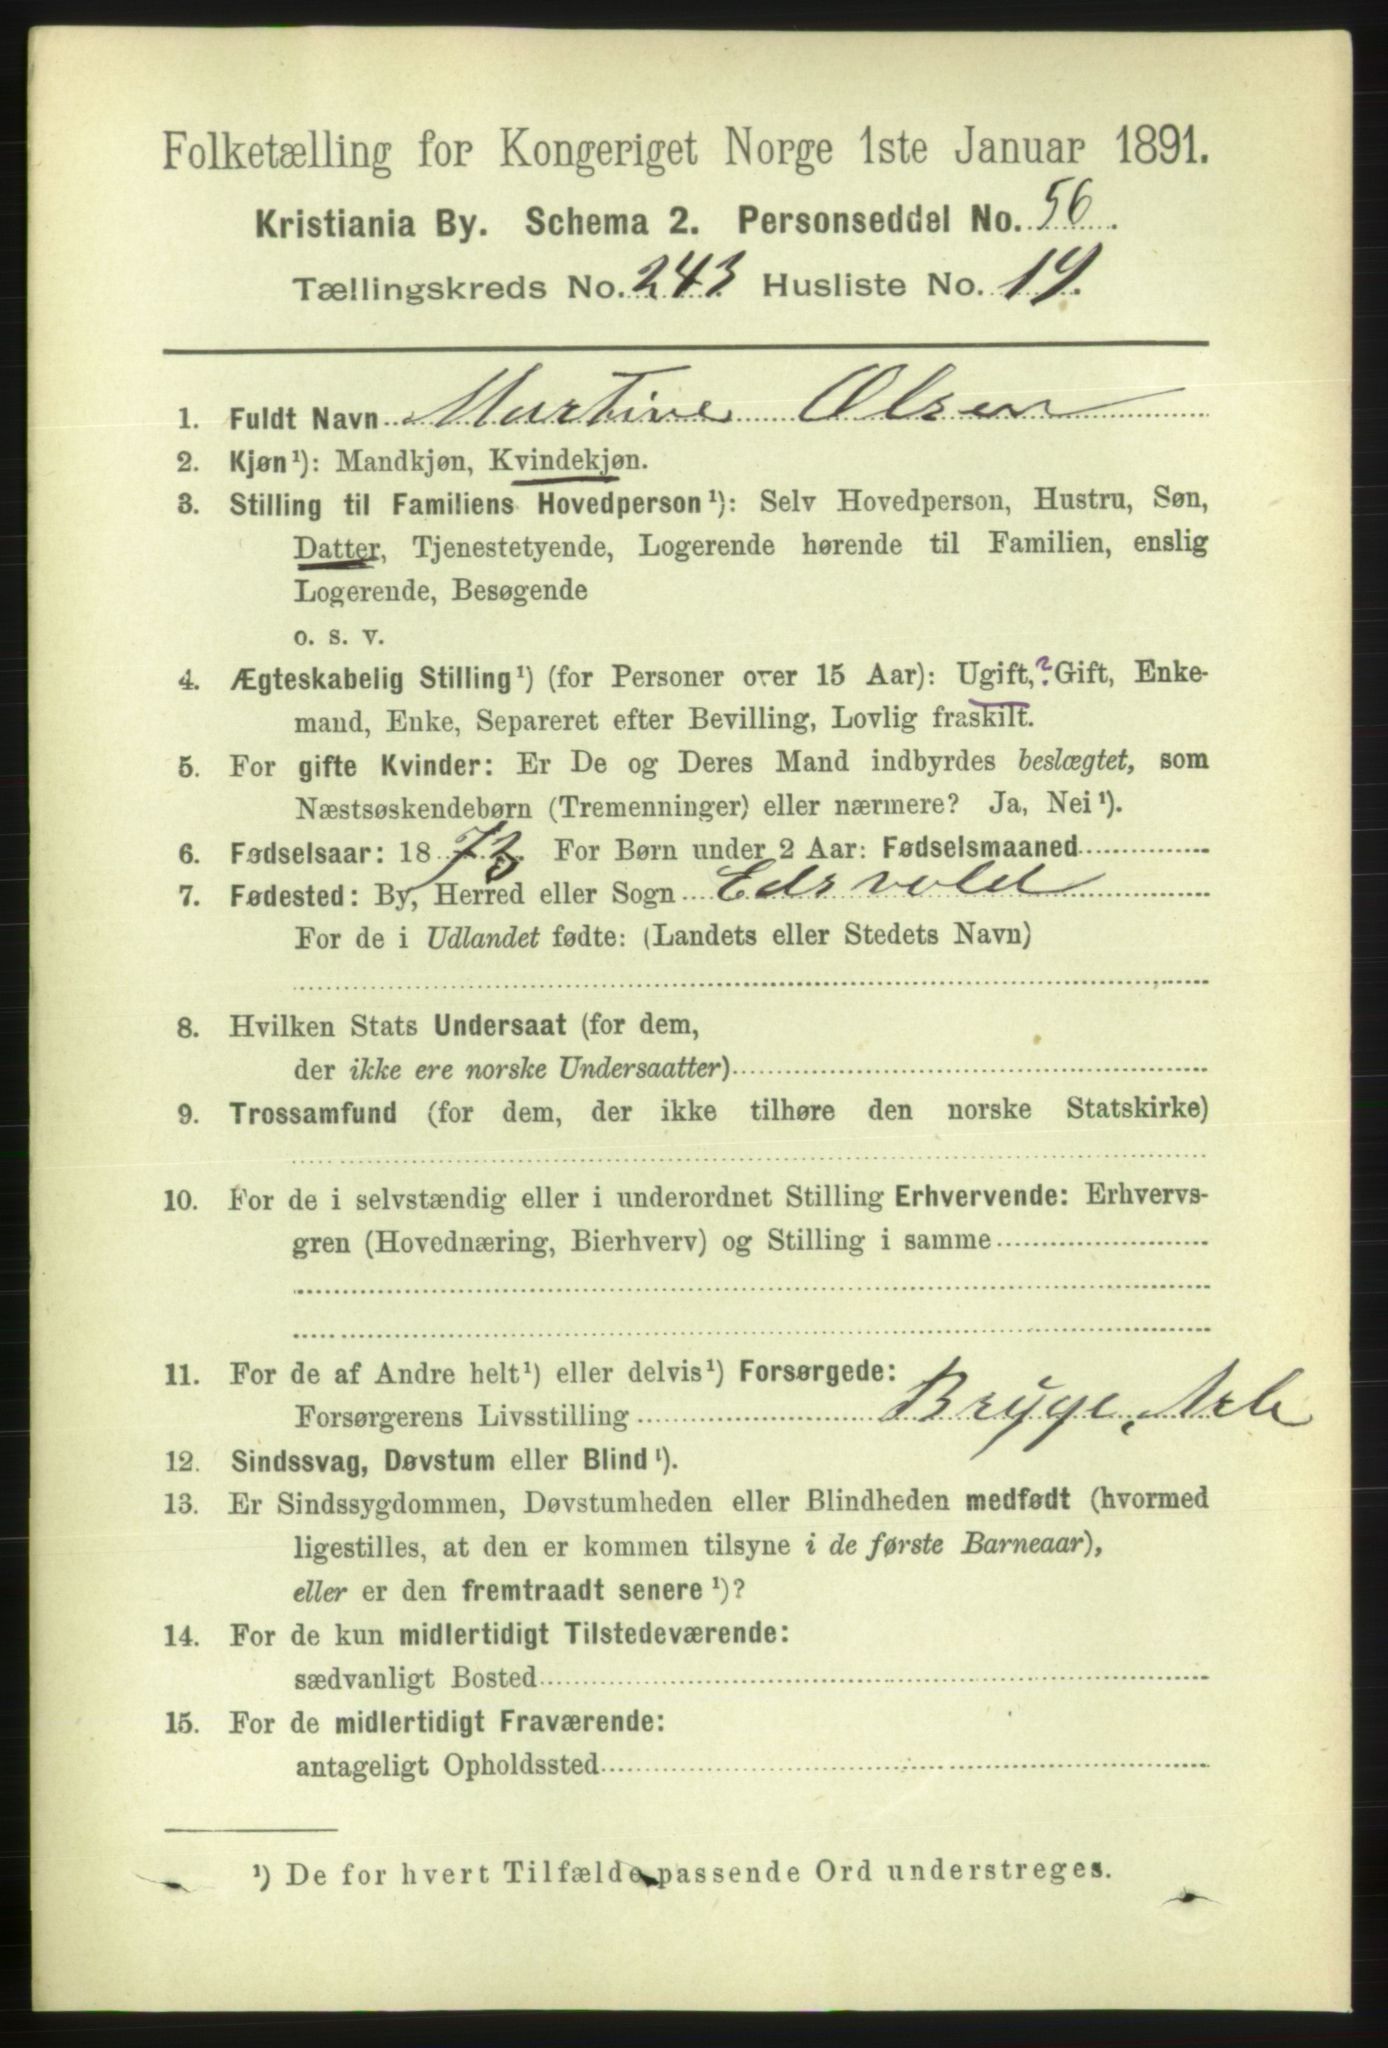 Folketælling for Kongeriget Norge 1ste Januar 1891.
Kristiania By. Schema 2. Personseddel No. 56.
Tællingskreds No. 243 Husliste No. 19.
1. Fuldt Navn Martine Olsen
2. Kjøn¹): Mandkjøn, Kvindekjøn.
3. Stilling til Familiens Hovedperson¹): Selv Hovedperson, Hustru, Søn,
Datter, Tjenestetyende, Logerende hørende til Familien, enslig
Logerende, Besøgende
o. s. v.
4. Ægteskabelig Stilling¹) (for Personer over 15 Aar): Ugift,? Gift, Enke-
mand, Enke, Separeret efter Bevilling, Lovlig fraskilt.
5. For gifte Kvinder: Er De og Deres Mand indbyrdes beslægtet, som
Næstsøskendebørn (Tremenninger) eller nærmere? Ja, Nei¹).
6. Fødselsaar: 1873 For Børn under 2 Aar: Fødselsmaaned
7. Fødested: By, Herred eller Sogn Edsvold
For de i Udlandet fødte: (Landets eller Stedets Navn)
8. Hvilken Stats Undersaat (for dem,
der ikke ere norske Undersaatter)
9. Trossamfund (for dem, der ikke tilhøre den norske Statskirke)
10. For de i selvstændig eller i underordnet Stilling Erhvervende: Erhvervs-
gren (Hovednæring, Bierhverv) og Stilling i samme
11. For de af Andre helt¹) eller delvis¹) Forsørgede:
Forsørgerens Livsstilling Brygge, Arb
12. Sindssvag, Døvstum eller Blind¹).
13. Er Sindssygdommen, Døvstumheden eller Blindheden medfødt (hvormed
ligestilles, at den er kommen tilsyne i de første Barneaar),
eller er den fremtraadt senere¹)?
14. For de kun midlertidigt Tilstedeværende:
sædvanligt Bosted
15. For de midlertidigt Fraværende:
antageligt Opholdssted
¹) De for hvert Tilfælde passende Ord understreges.